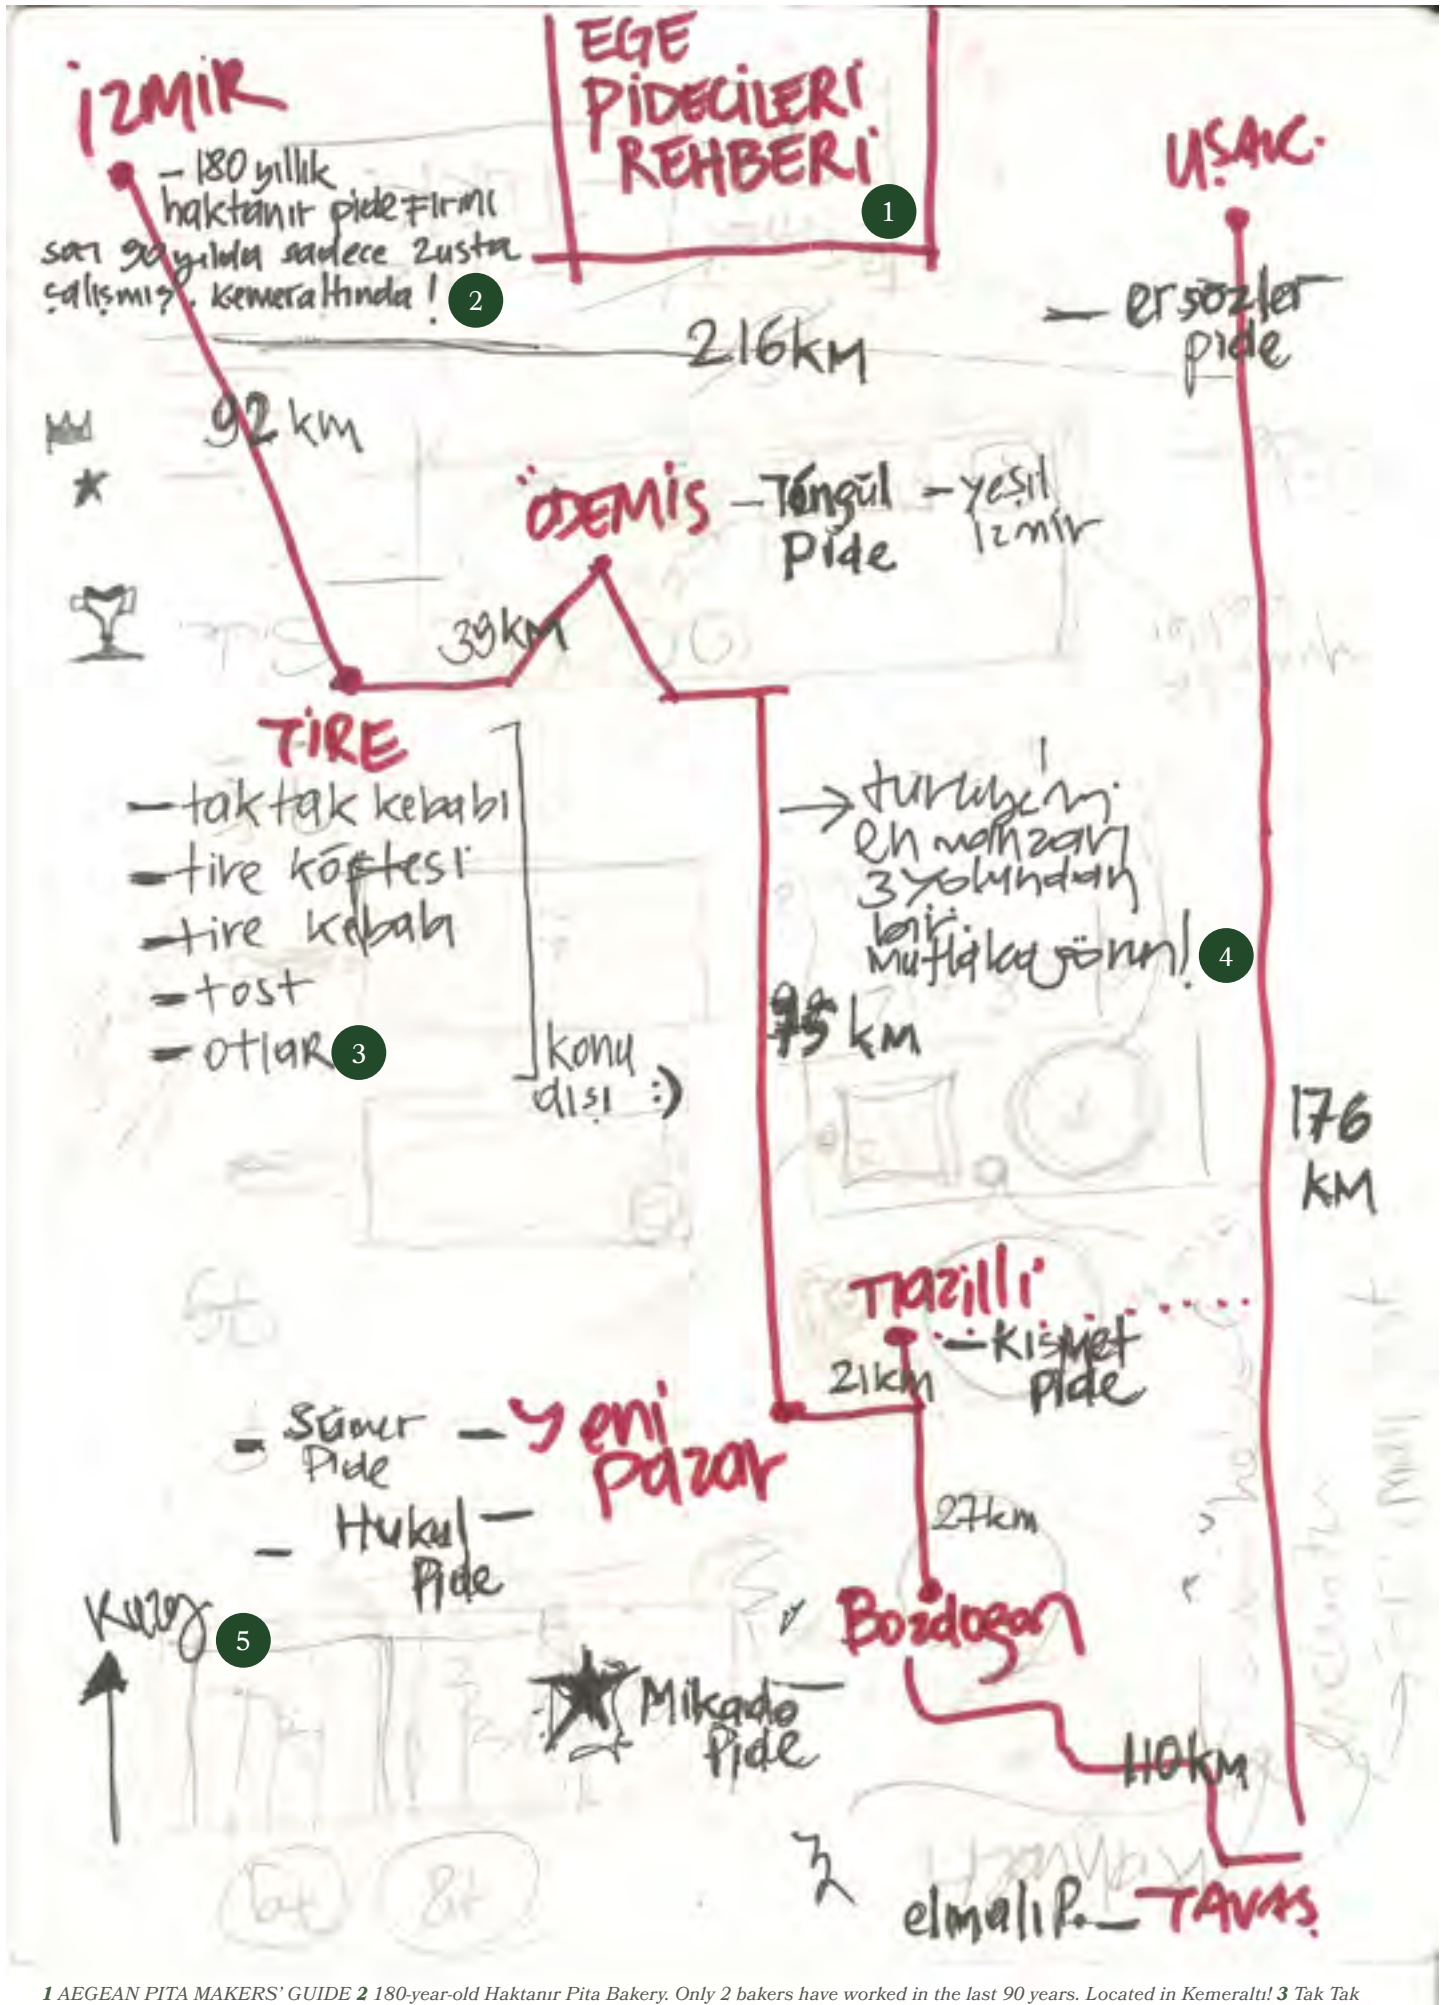 EGE
PİDECİLERİ
REHBERİ
1
İZMİR
- 180 yıllık
haktanır pide fırını
son 90 yılda sadece 2 usta
çalışmış. kemeraltında!
2
UŞAK.
- ersözler
pide
216 KM
92 km
ÖDEMİŞ
- Töngül
Pide
- yeşil
izmir
39 KM
TİRE
- taktak kebabı
- tire köftesi
- tire kebabı
- tost
- otlar
3
konu
dışı :)
→ türkiye'nin
en manzaralı
3 yolundan
biri.
mutlaka görün!
4
km
176
KM
nazilli
- Kısmet
pide
21km
- Sümer
Pide
- yeni
pazar
- Hukul -
Pide
27km
Bozdoğan
Kuzey
5
Mikado -
Pide
110KM
elmalı P. - TAVAS
1 AEGEAN PITA MAKERS' GUIDE 2 180-year-old Haktanır Pita Bakery. Only 2 bakers have worked in the last 90 years. Located in Kemeraltı! 3 Tak Tak